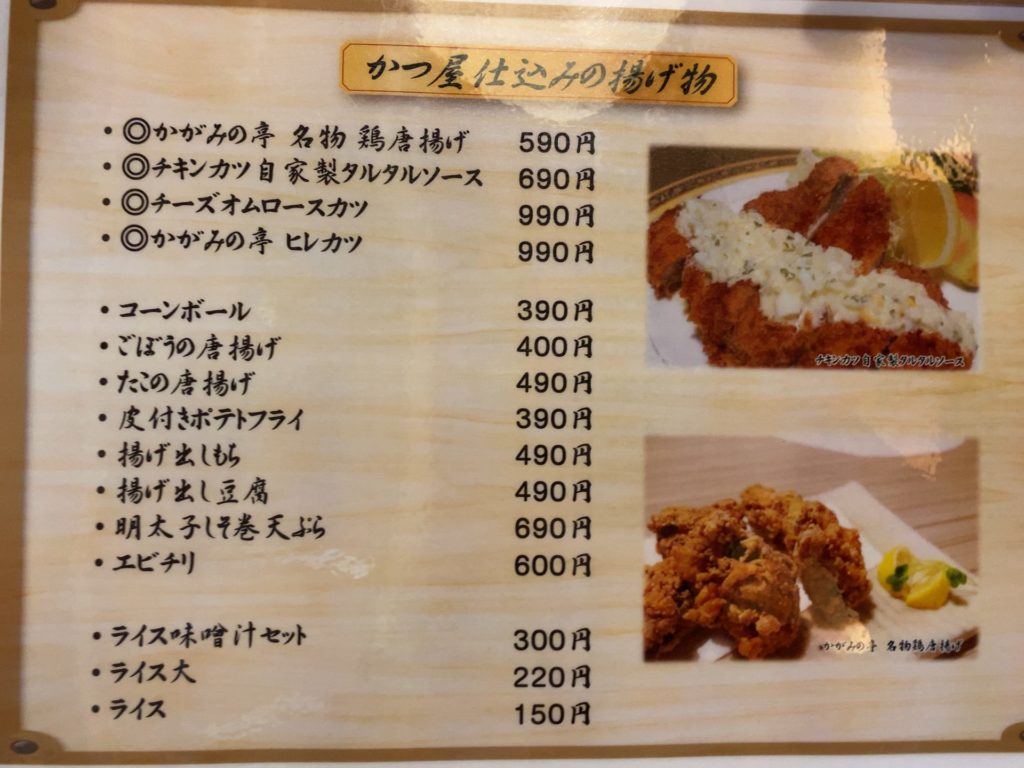 かつ屋仕込みの揚げ物
・◎かがみの亭 名物 鶏唐揚げ 590円
・◎チキンカツ自家製タルタルソース 690円
・◎チーズオムロースカツ 990円
・◎かがみの亭 ヒレカツ 990円
・コーンボール 390円
・ごぼうの唐揚げ 400円
・たこの唐揚げ 490円
・皮付きポテトフライ 390円
・揚げ出しもち 490円
・揚げ出し豆腐 490円
・明太子しそ巻天ぷら 690円
・エビチリ 600円
・ライス味噌汁セット 300円
・ライス大 220円
・ライス 150円
チキンカツ自家製タルタルソース
かがみの亭 名物鶏唐揚げ